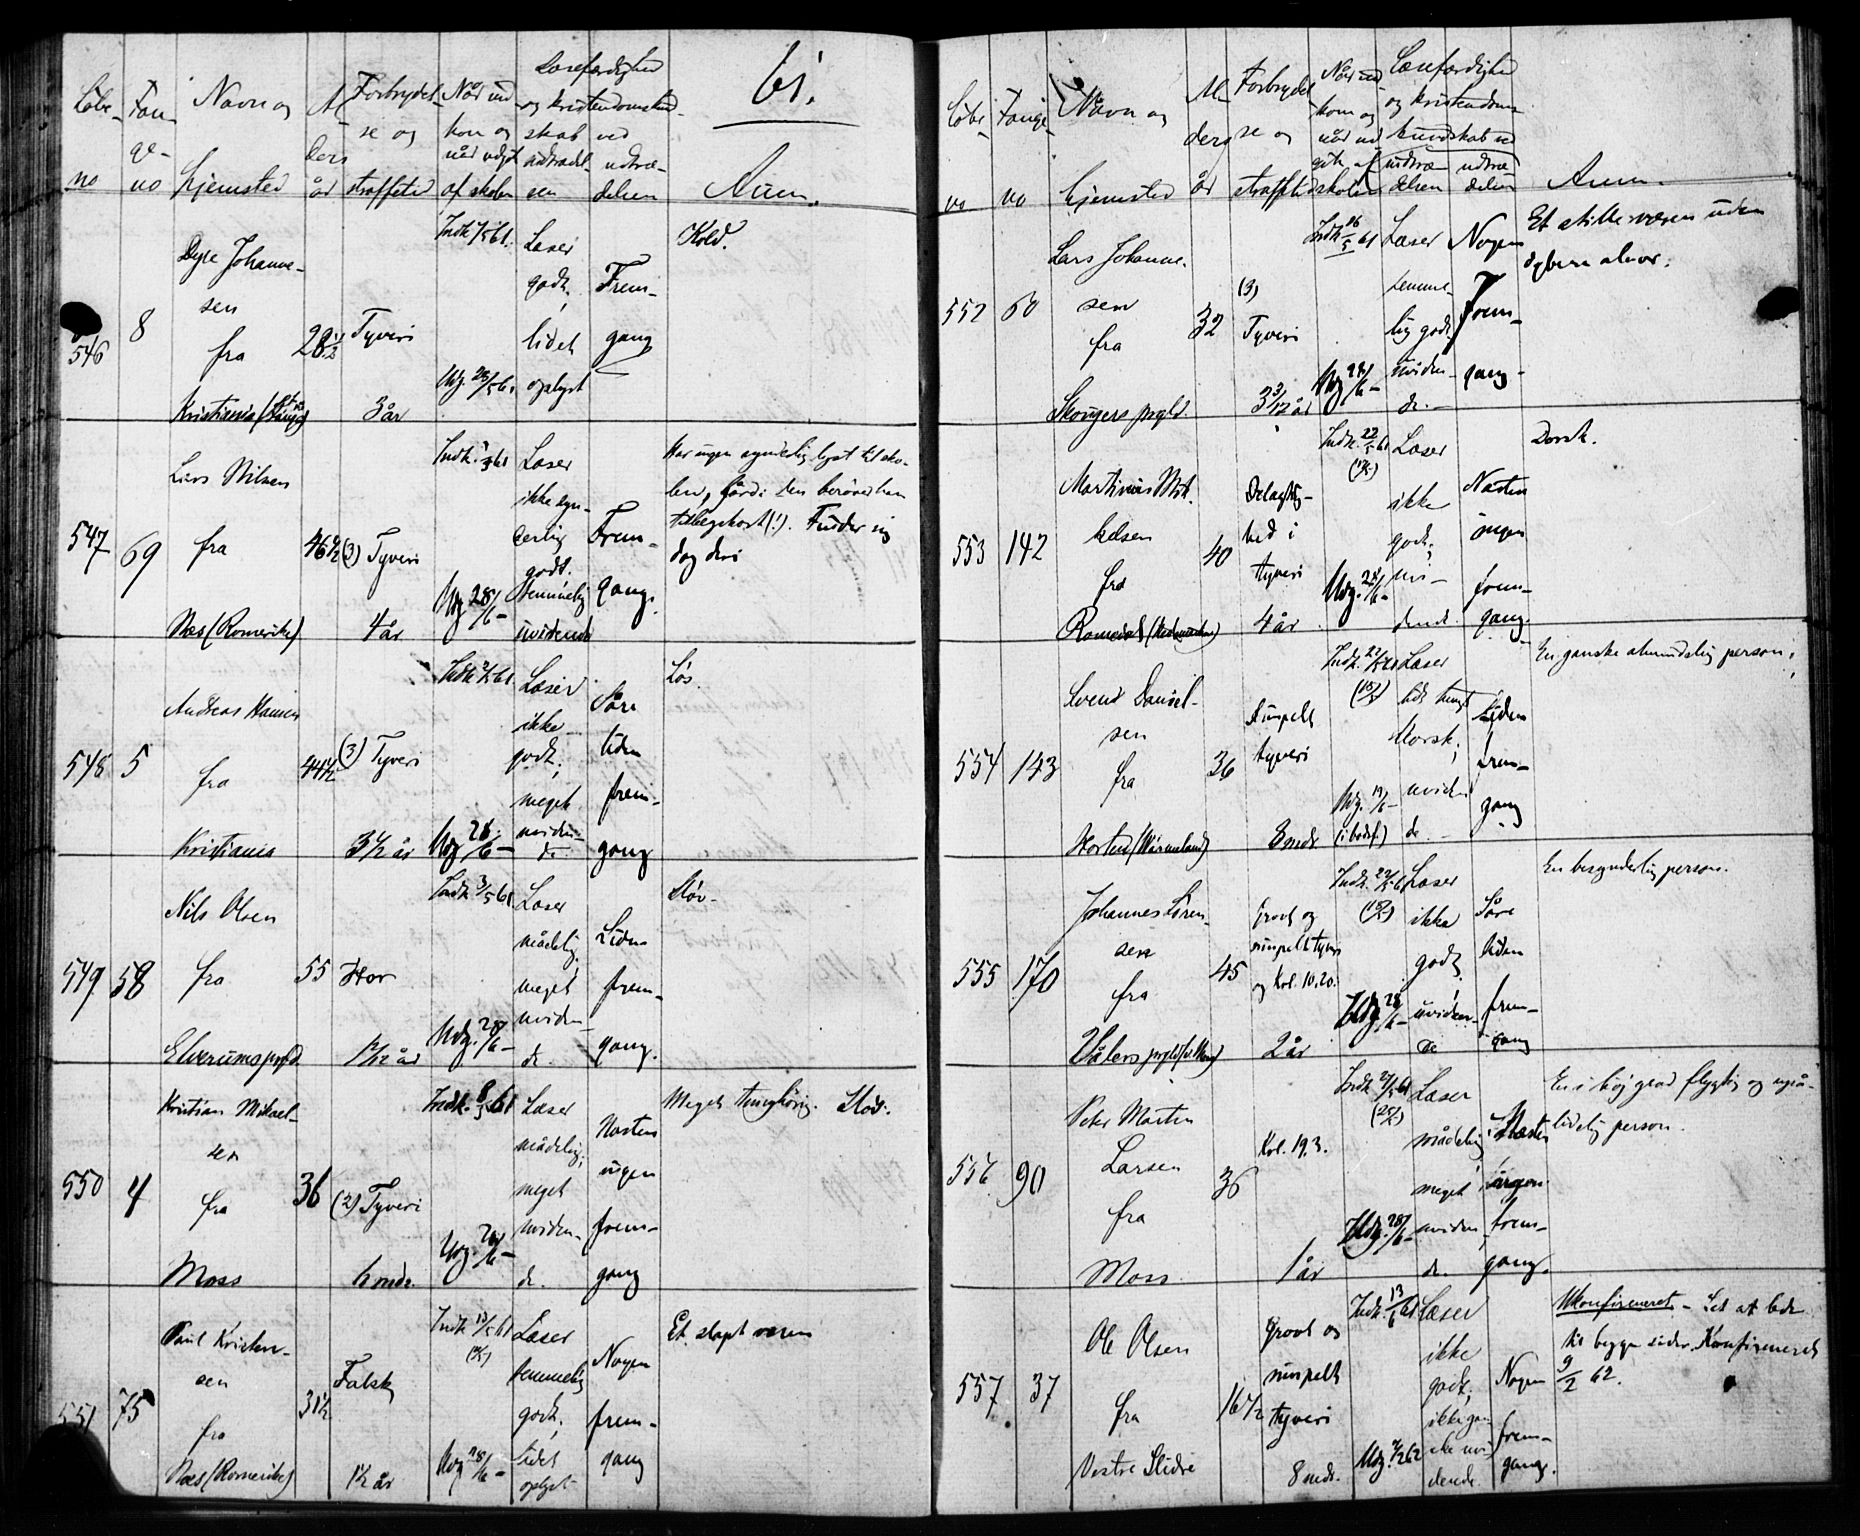 61.
Löbe-
no
Fan-
ge-
no
Navn og
hjemsted
Al-
ders
år
Forbrydel-
se og
straffetid
Når ind
kom og
når udgik
af skolen
Læsefærdighed
og kristendomskund-
skab ved
indtrædel-
sen
udtræ-
delsen
Anm.
546
8
Johanne-
sen
fra
Kristiania
28 1/2
Tyveri
3 år
Indk. 1/5 61.
Udg. 28/5 61.
Læser
godt,
lidet
oplyst
Frem-
gang
Kold.
547
69
Lars Nilsen
fra
Næs (Romerike)
46 1/2
(3) Tyveri
4 år
Indk. 61
Udg 28/6 -
Læser
ikke syn-
derlig
godt.
temmelig
uvidende
Frem-
gang.
Har ingen synderlig lyst til sko-
len, fordi den berøver ham
Finder sig
dog deri
548
5
Andreas Hansen
fra
Kristiania
44 1/2
(3) Tyveri
3 1/2 år
Indk. 2/5 61.
Udg 28/6 -
Læser
ikke
godt;
meget
uviden-
de
Såre
liden
frem-
gang
Løs.
549
58
Nils Olsen
fra
Elverums prgld.
55
Hor
1 1/2 år
Indk. 3/5 61
Udg. 28/6 -
Læser
mådelig,
meget
uviden-
de.
Liden
frem-
gang.
Sløv.
550
4
Kristian Mikael-
sen
fra
Moss
36
(2) Tyveri
6 mdr.
Indk. 8/5 61
Udg. 28/6 -
Læser
mådelig;
meget
uviden-
de.
Næsten
ingen
frem-
gang
Meget tunghörig. Sløv.
551
75
Paul Kristen-
sen
fra
Næs (Romerike)
31 1/2
Falsk
1 1/2 år
Indk. 13/5 61
Udg 28/6 -
Læser
temmelig
godt;
lidet
oplyst
Nogen
frem-
gang
Et slapt væsen
Löbe-
no
Fange-
no
Navn og
hjemsted
Al-
ders
år
Forbrydel
se og
straffetid
Når ind
kom og
når ud
gik af
skolen
Læsefærdighed
og kristendoms-
kundskab ved
indtræ-
delsen
udtræ-
delsen
Anm.
552
60
Lars Johanne-
sen
fra
Skougers prgld
32
(3)
Tyveri
3 3/12 år
Indk. 16/5 61
Udg 28/6 -
Læser
temme-
lig godt.
uviden-
de. -
Nogen
Frem-
gang -
Et stille væsen uden
dybere alvor.
553
142
Martinius Mik-
kelsen
fra
Romedal (Hedemarken)
40
Delagtig-
hed i
tyveri
4 år
Indk. 22/5 61
Udg. 28/6 -
Læser
ikke
godt;
uvi-
dende.
Næsten
ingen
frem-
gang.
Dorsk.
554
143
Svend Daniel-
sen
fra
(Wärmeland)
36
simpelt
tyveri
8 mdr
Indk. 22/5 61
Udg. 19/6 -
Læser
lidt tungt
norsk;
uviden
de. -
Liden
frem-
gang
En ganske almindelig person.
555
170
Johannes Sören-
sen
fra
Vålers prgld
45
Grovt og
simpelt tyveri
og Krl. 10.20.
2 år
Indk. 22/5 61
Udg. 28/6 -
Læser
ikke
godt,
uviden-
de
Såre
liden
frem-
gang
En besynderlig person.
556
90
Peter Martin
Larsen
fra
Moss
36
Krl. 19.3.
1 år
Indk. 27/5 61
Udg. 28/6 -
Læser
mådelig;
meget
uviden
de.
Næsten
ingen
frem-
gang.
En i høj grad flygtig og upå-
lidelig person.
557
37
Ole Olsen
fra
Vestre Slidre
16 1/2
Grovt og
simpelt
tyveri
8 mdr.
Indk. 13/6 61
Udg. 262
Læser
ikke
godt;
ikke gan-
ske uvi-
dende.
Nogen
frem-
gang.
Ukonfirmeret. - Let at lede
til begge sider. Konfirmeret
9/2 62.